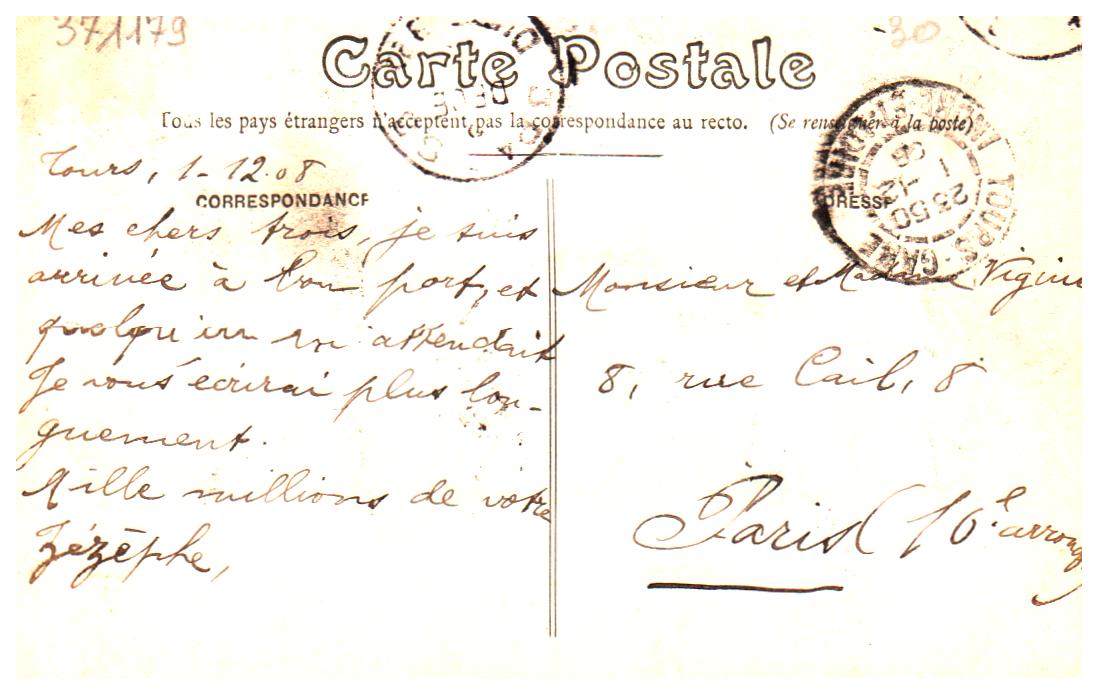 371179
30
Carte Postale
Tous les pays étrangers n'acceptent pas la correspondance au recto. (Se renseigner à la poste)
Tours, 1-12.08
CORRESPONDANCE
Mes chers trois, je suis
arrivée à bon port, et
quelqu'un m'attendait
Je vous écrirai plus lon-
guement.
Mille millions de votre
Zézèphe,
ADRESSE
TOURS-GARE
INDRE-ET-LOIRE
23 50
1 - 12
08
Monsieur et Madame
8, rue Cail, 8
Paris (10.e arrong